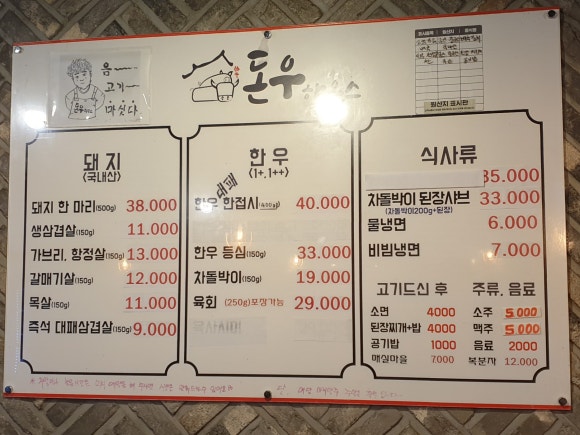 음~~
고기~
마싯다
돈우
원산지 표시판
돼지
<국내산>
돼지 한 마리(500g) 38.000
생삼겹살(150g) 11.000
가브리, 항정살(150g) 13.000
갈매기살(150g) 12.000
목살(150g) 11.000
즉석 대패삼겹살(150g) 9.000
한우
<1+, 1++>
대패
한우 한접시(400g) 40.000
한우 등심(150g) 33.000
차돌박이(150g) 19.000
육회 (250g)포장가능 29.000
식사류
35.000
차돌박이 된장샤브 33.000
(차돌박이200g+된장)
물냉면 6.000
비빔냉면 7.000
고기드신 후
소면 4000
된장찌개+밥 4000
공기밥 1000
매실마을 7000
주류, 음료
소주 5.000
맥주 5.000
음료 2000
복분자 12.000